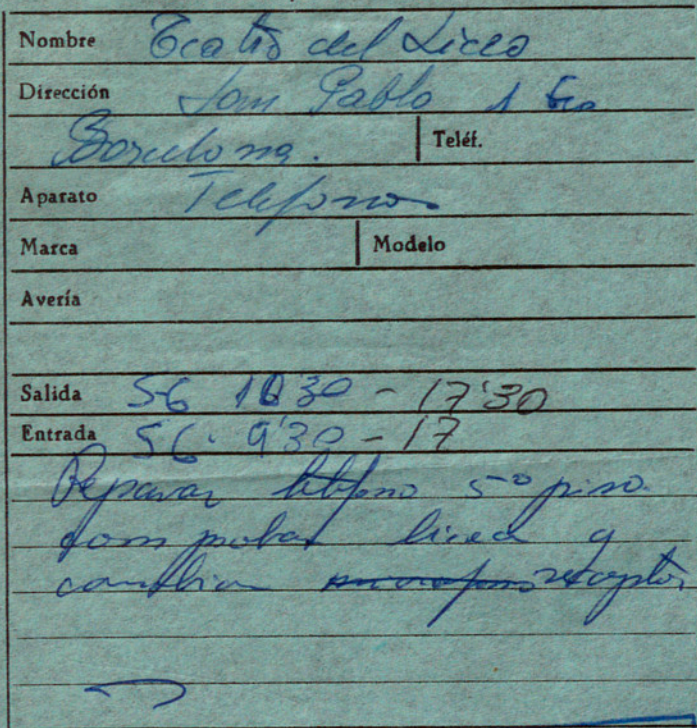 Nombre Teatro del Liceo
Dirección San Pablo 1 bis
Barcelona. Teléf.
Aparato Telefonos
Marca Modelo
Avería
Salida 56 10'30 - 17'30
Entrada 56. 9'30 - 17
Reparar telefono 5º piso.
comprobar linea y
cambiar microfono receptor